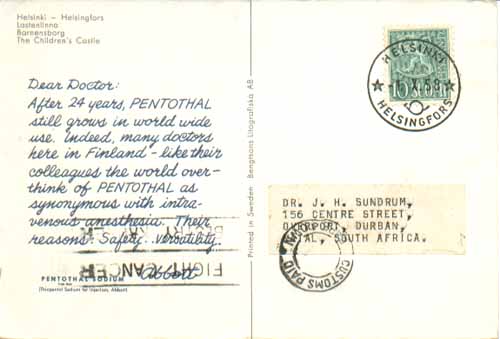 Helsinki - Helsingfors
Lastenlinna
Barnensborg
The Children's Castle
Dear Doctor:
After 24 years, PENTOTHAL
still grows in world wide
use. Indeed, many doctors
here in Finland - like their
colleagues the world over -
think of PENTOTHAL as
synonymous with intra-
venous anesthesia. Their
reasons? Safety...versatility.
Abbott
FIGHT CANCER
PENTOTHAL SODIUM
(Thiopental Sodium for Injection, Abbott)
Printed in Sweden Bengtsons Litografiska AB
HELSINKI
XI.58
HELSINGFORS
10
DR. J. H. SUNDRUM,
156 CENTRE STREET,
OVERPORT, DURBAN,
NATAL, SOUTH AFRICA.
CUSTOMS PAID